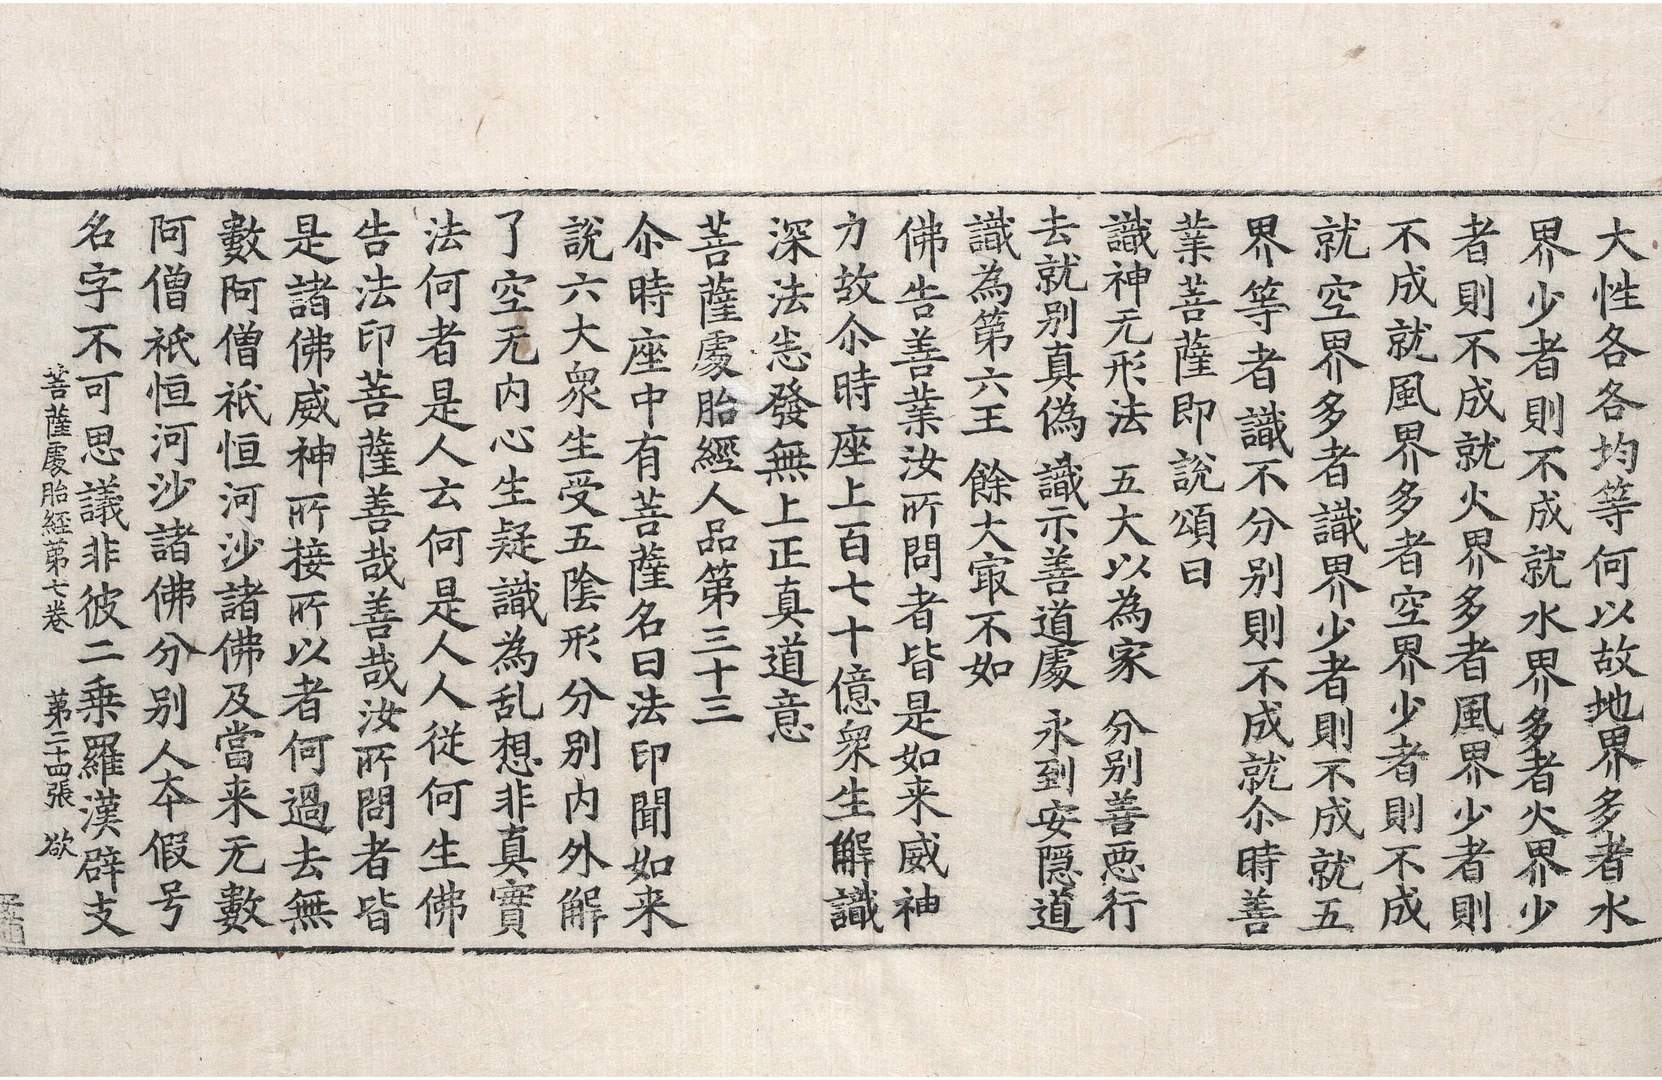 大性各各均等何以故地界多者水
界少者則不成就水界多者火界少
者則不成就火界多者風界少者則
不成就風界多者空界少者則不成
就空界多者識界少者則不成就五
界等者識不分別則不成就尒時善
業菩薩即說頌曰
識神无形法 五大以為家 分別善惡行
去就別真偽 識示善道處 永到安隱道
識為第六王 餘大㝡不如
佛告善業汝所問者皆是如来威神
力故尒時座上百七十億衆生解識
深法悉發無上正真道意
菩薩處胎經人品第三十三
尒時座中有菩薩名曰法印聞如来
說六大衆生受五陰形分別内外解
了空无内心生疑識為乱想非真實
法何者是人云何是人人從何生佛
告法印菩薩善哉善哉汝所問者皆
是諸佛威神所接所以者何過去無
數阿僧祇恒河沙諸佛及當来无數
阿僧祇恒河沙諸佛分別人本假号
名字不可思議非彼二乗羅漢辟支
菩薩處胎經第七卷 第二十四張 欲